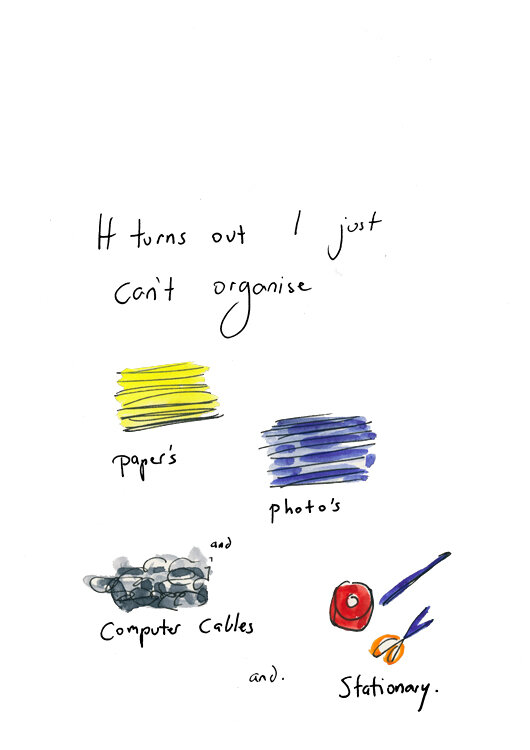 It turns out I just
can't organise
paper's
photo's
and
Computer Cables
and.
Stationary.